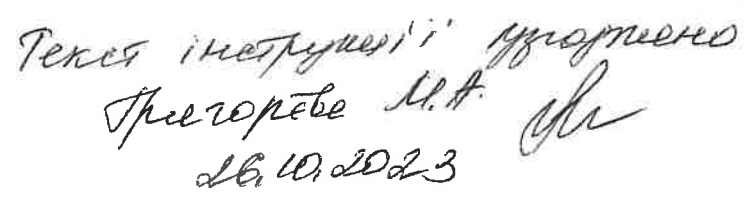 Текст інструкції узгоджено
Григор'єва М.А.
26.10.2023